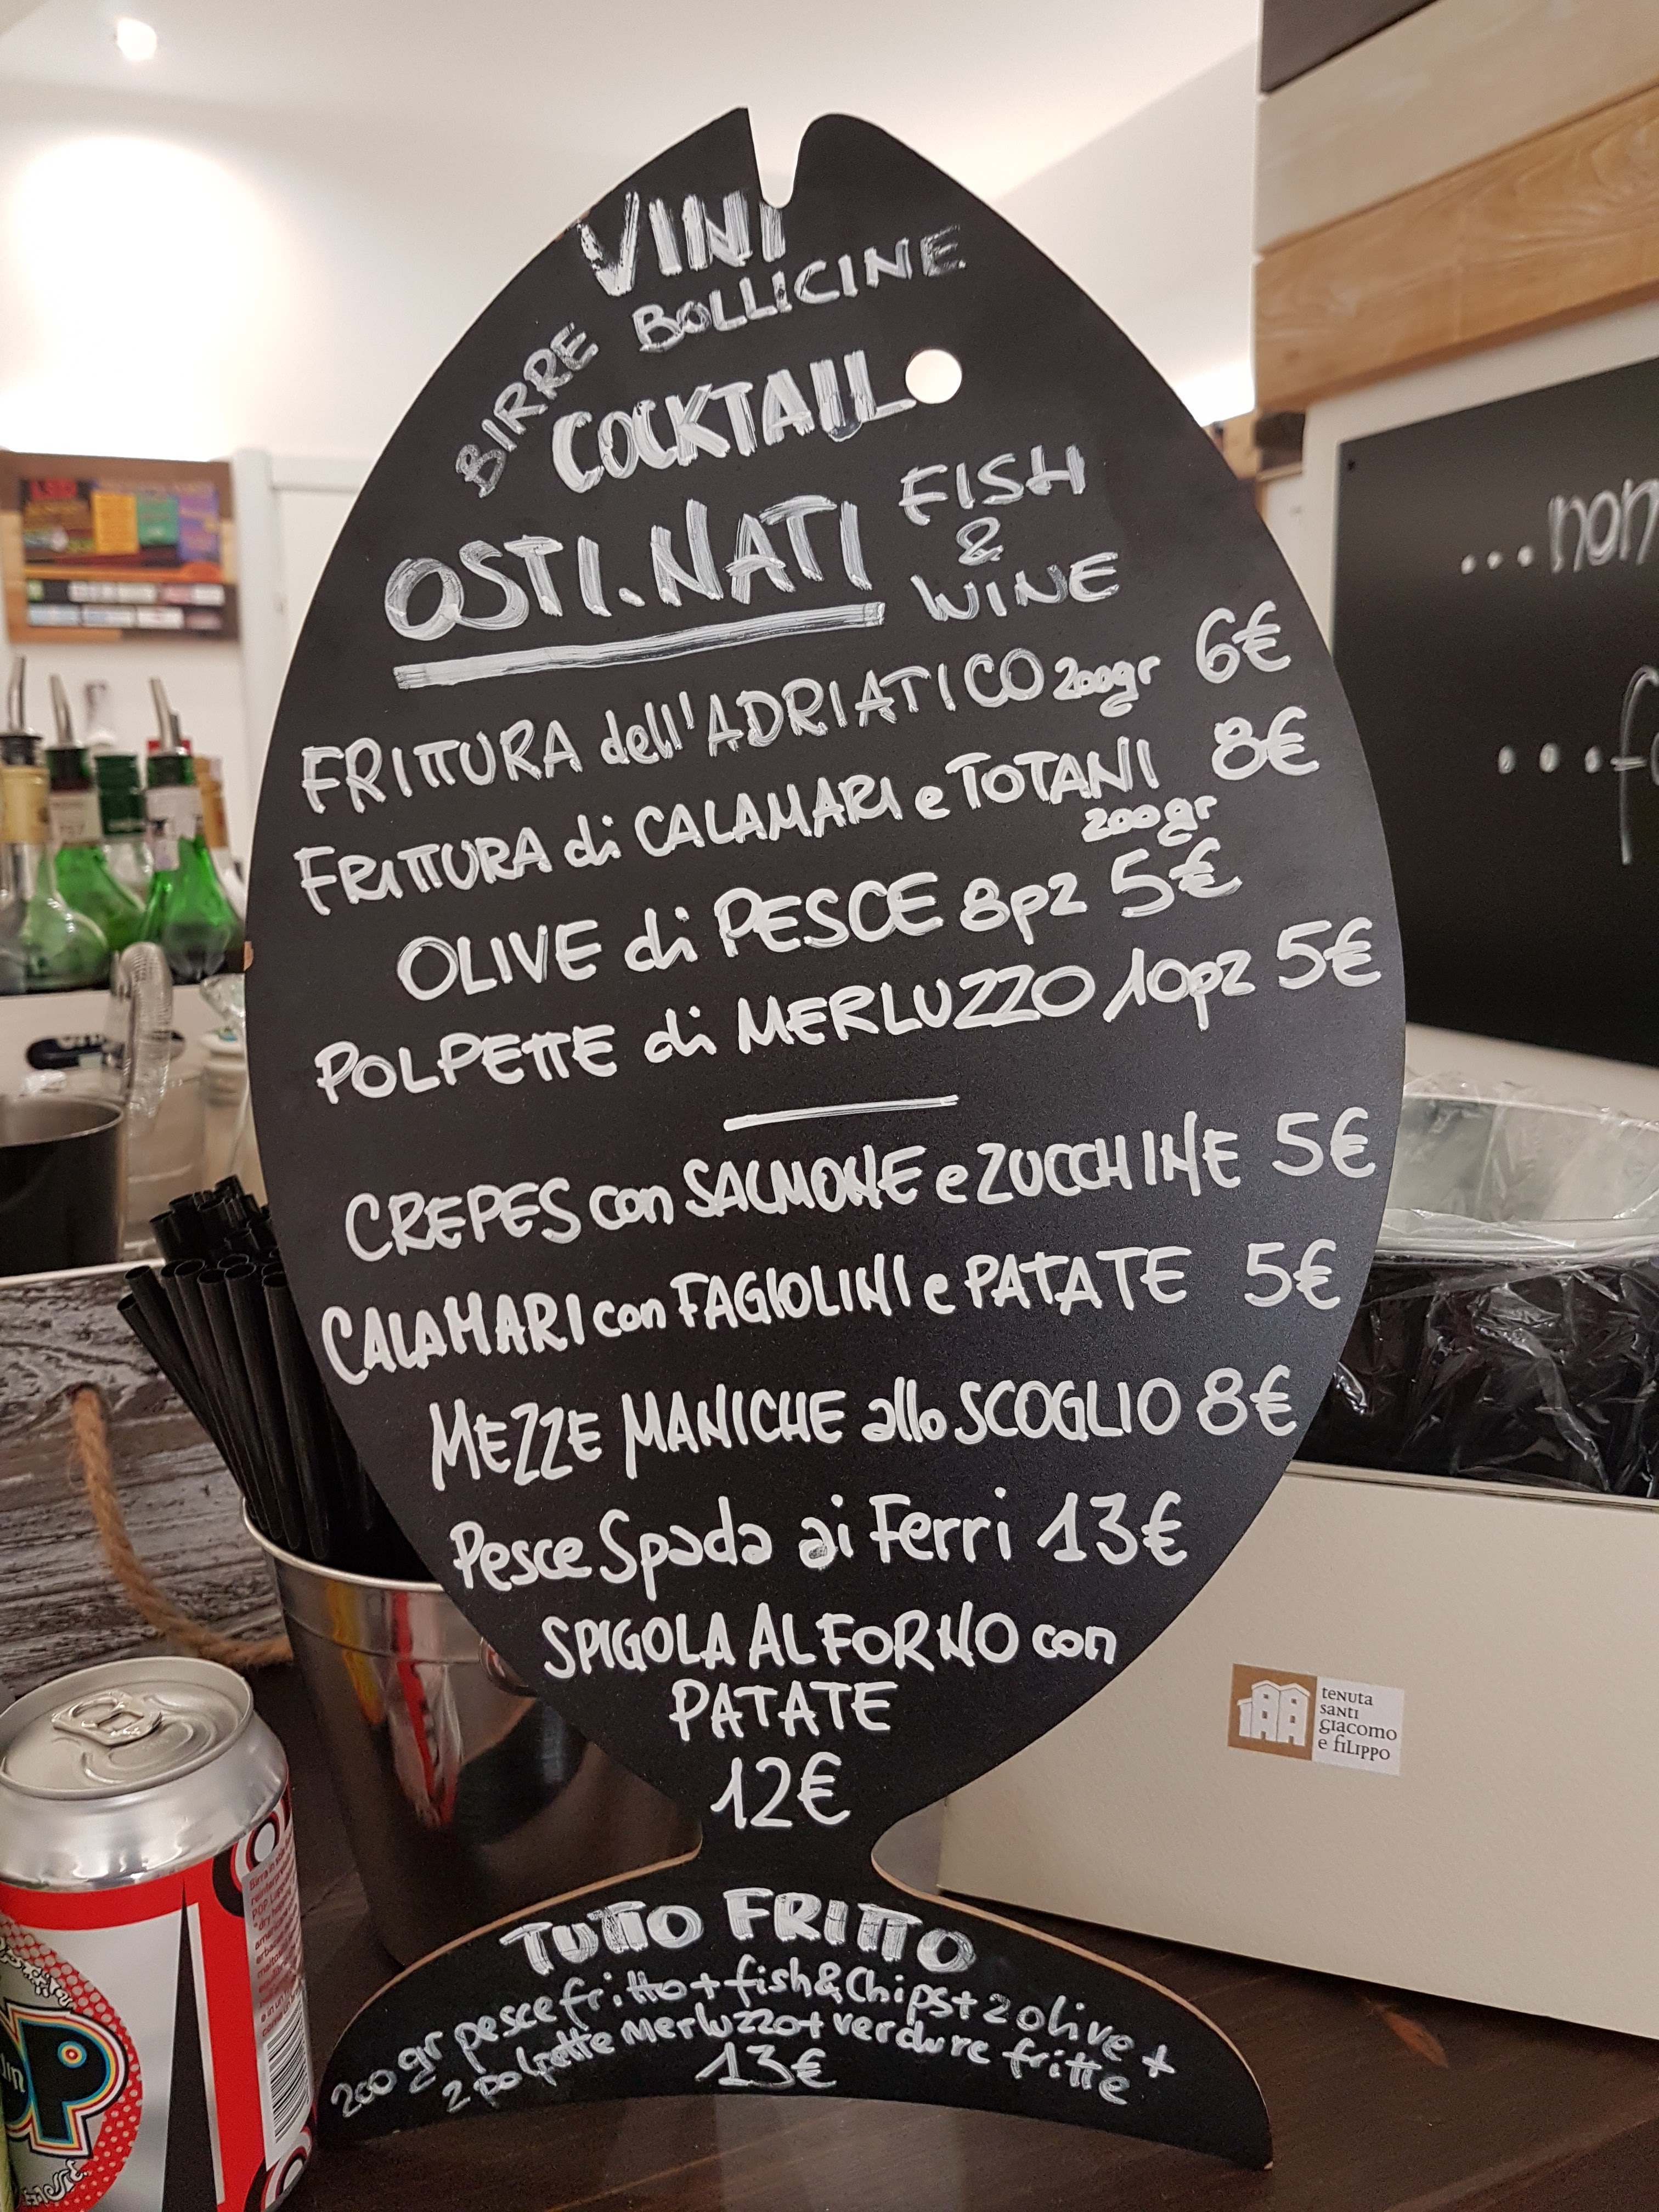 VINI
BIRRE BOLLICINE
COCKTAIL
OSTI.NATI FISH & WINE
FRITTURA dell'ADRIATICO 200gr 6€
FRITTURA di CALAMARI e TOTANI 8€
200gr
OLIVE di PESCE 8pz 5€
POLPETTE di MERLUZZO 10pz 5€
CREPES con SALMONE e ZUCCHINE 5€
CALAMARI con FAGIOLINI e PATATE 5€
MEZZE MANICHE allo SCOGLIO 8€
Pesce Spada ai Ferri 13€
SPIGOLA AL FORNO con
PATATE
12€
TUTTO FRITTO
200 gr pesce fritto + fish&Chips + 2 olive +
2 polpette Merluzzo + verdure fritte
13€
...non
tenuta
santi
giacomo
e filippo